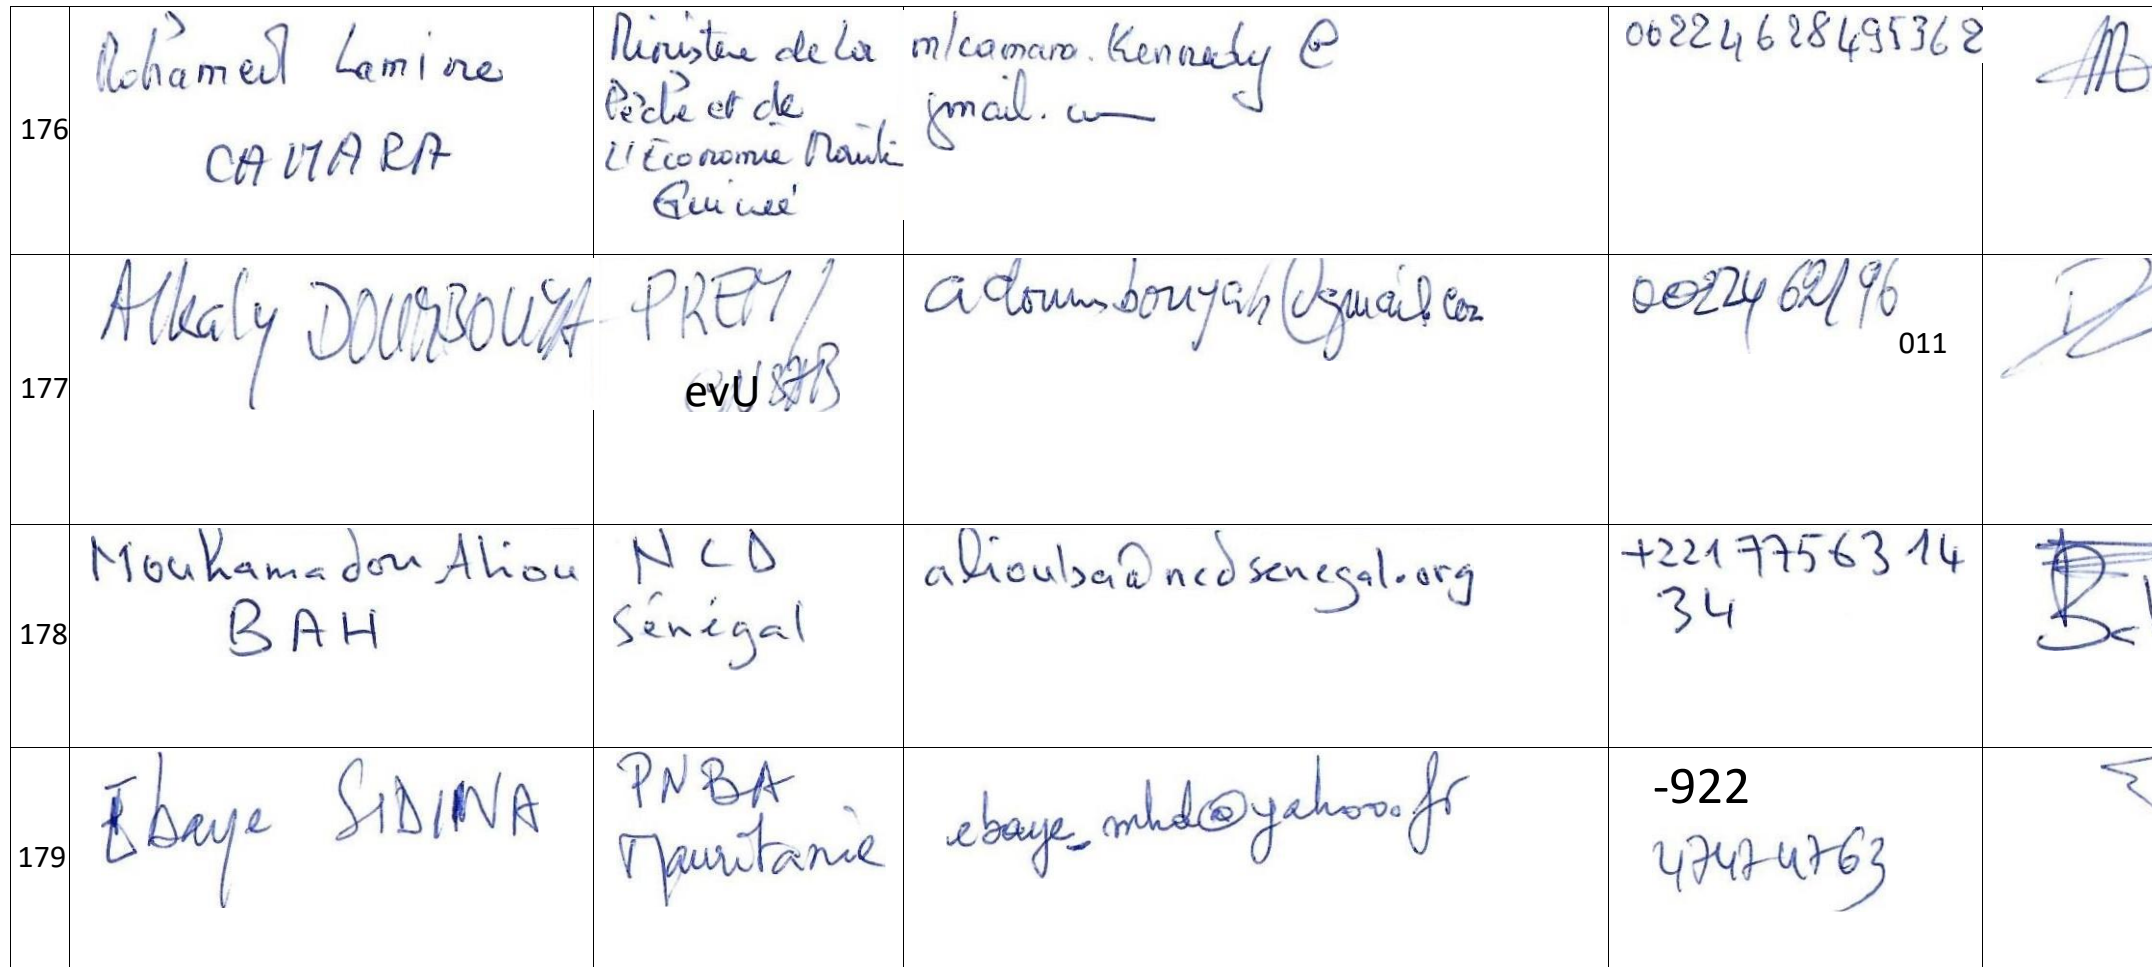 176
Mohamed Lamine
CAMARA
Ministère de la
Pêche et de
L'Economie Mariti
Guinée
mlcamara.Kennedy @
gmail.
00224628495362
177
Alkaly DOUMBOUYA
PREM/
evU
adoumbouyah@gmail.com
0022462196
011
178
Mouhamadou Aliou
BAH
NCD
Sénégal
aliouba@ncdsenegal.org
+221 77 563 14
34
179
Ebaye SIDINA
PNBA
Mauritanie
ebaye_mhd@yahoo.fr
-922
47474763